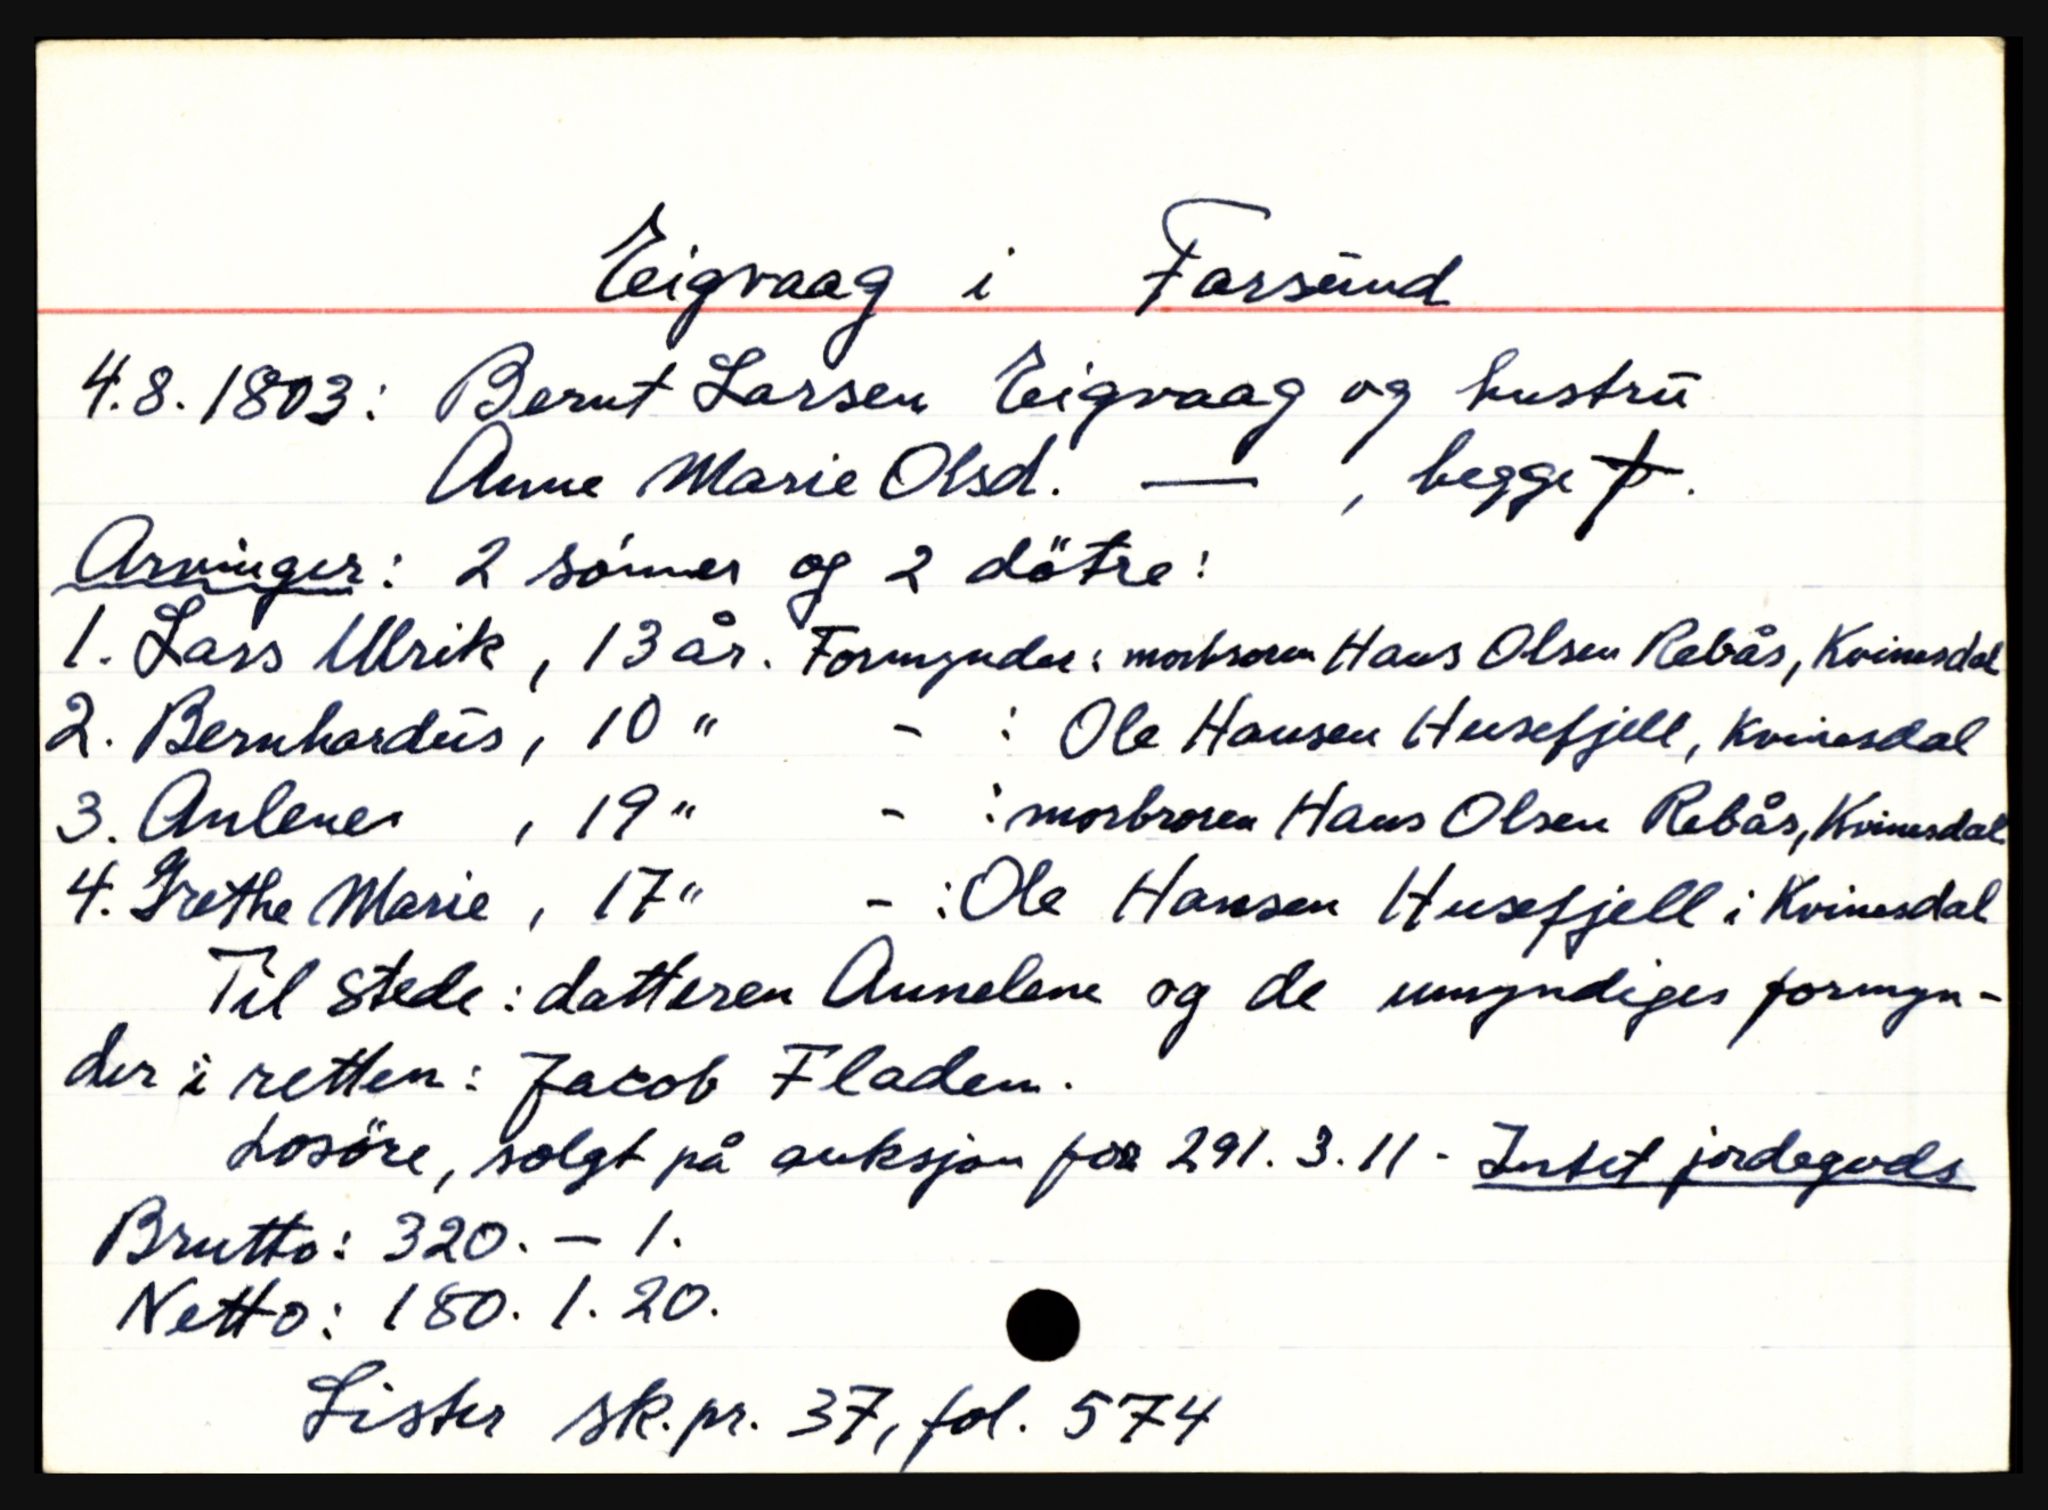 Eigvaag i Farsund
4.8.1803: Bernt Larsen Eigvaag og hustru
Anne Marie Olsd. — , begge †.
Arvinger: 2 sönner og 2 dötre:
1. Lars Ulrik, 13 år. Formynder: morbroren Hans Olsen Rebås, Kvinesdal
2. Bernhardus, 10 " - : Ole Hansen Husefjell, Kvinesdal
3. Anlene , 19 " - : morbroren Hans Olsen Rebås, Kvinesdal
4. Grethe Marie, 17 " - : Ole Hansen Husefjell i Kvinesdal
Til stede: datteren Annelene og de umyndiges formyn-
der i retten: Jacob Fladem.
Losöre, solgt på auksjon for 291.3.11 - Intet jordegods
Brutto: 320. - 1.
Netto: 180. 1. 20.
Lister sk.pr. 37, fol. 574